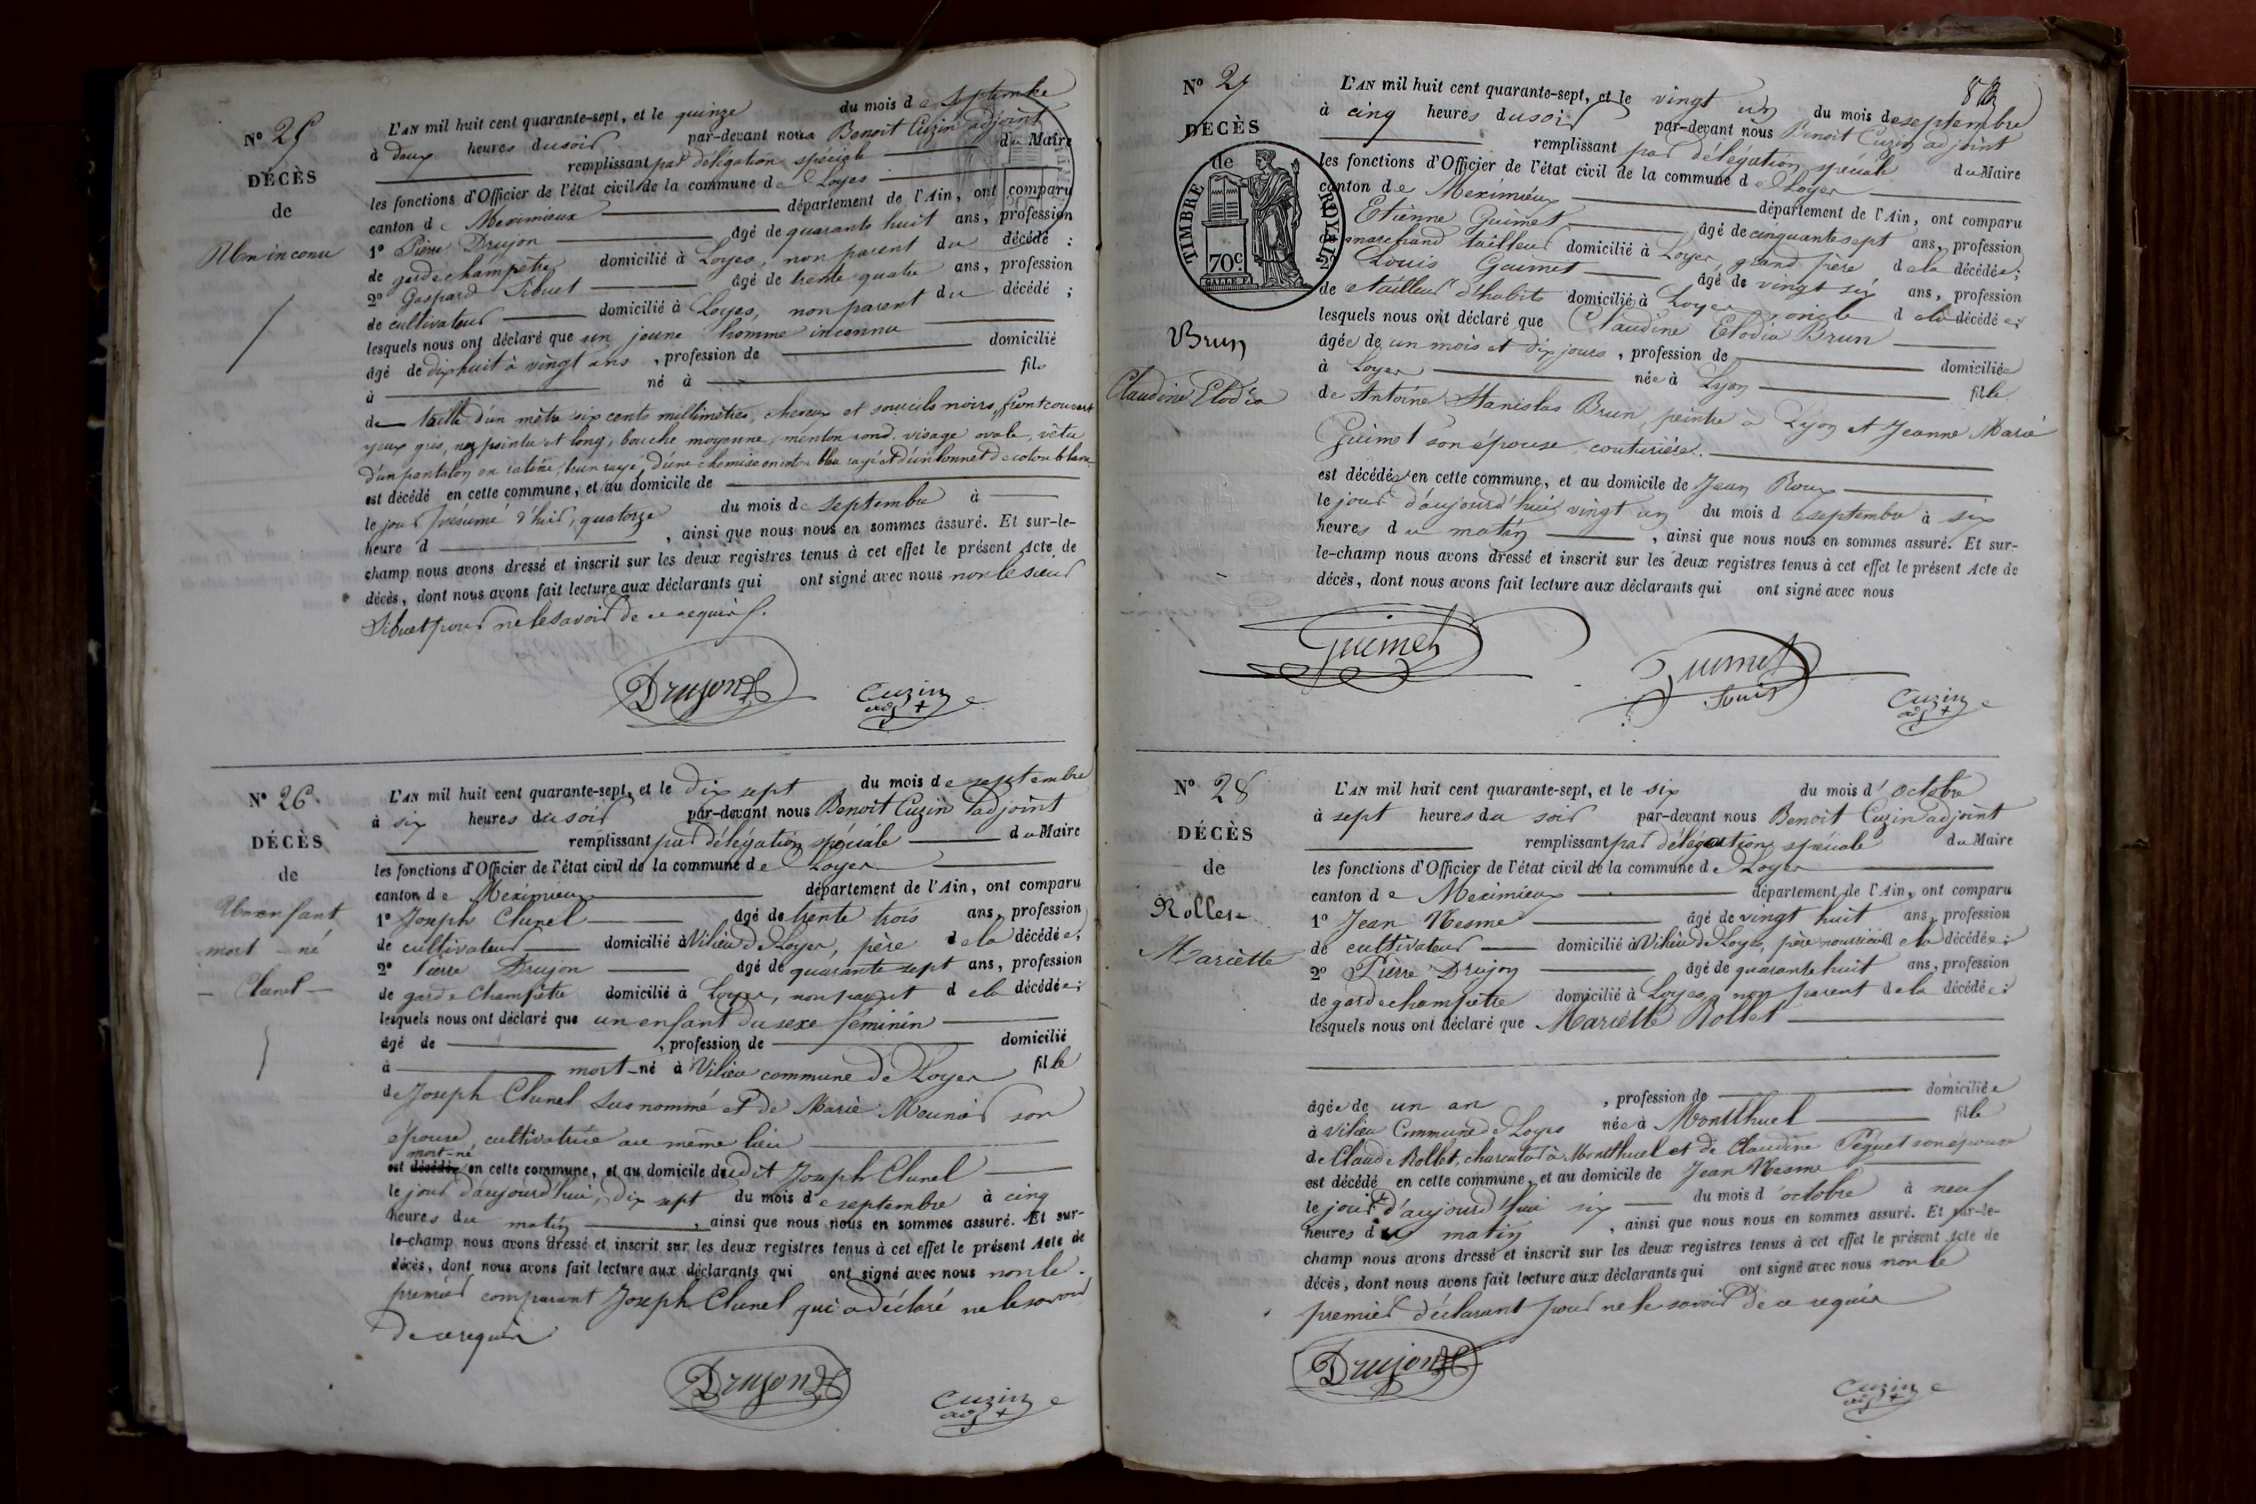 N° 25
DÉCÈS
de
Un inconu
L'AN mil huit cent quarante-sept, et le quinze du mois de septembre
à deux heures du soir par-devant nous Benoit Cuzin adjoint
remplissant par délégation spéciale du Maire
les fonctions d'Officier de l'état civil de la commune de Loyes
canton de Meximieux département de l'Ain, ont comparu
1° Pierre Drujon âgé de quarante huit ans, profession
de garde champêtre domicilié à Loyes, non parent du décédé :
2° Gaspard Sibuet âgé de trente quatre ans, profession
de cultivateur domicilié à Loyes, non parent du décédé ;
lesquels nous ont déclaré que un jeune homme inconnu
âgé de dix huit à vingt ans, profession de domicilié
à né à fils
de taille d'un mètre six cents millimètres, cheveux et sourcils noirs, front couvert
yeux gris, nez pointu et long, bouche moyenne, menton rond, visage ovale, vêtu
d'un pantalon en rayé, d'une chemise en coton bleu rayé et d'un bonnet de coton blanc
est décédé en cette commune, et au domicile de
le jour présumé d'hier, quatorze du mois de septembre à
heure d , ainsi que nous nous en sommes assuré. Et sur-le-
champ nous avons dressé et inscrit sur les deux registres tenus à cet effet le présent Acte de
décès, dont nous avons fait lecture aux déclarants qui ont signé avec nous non le sieur
Sibuet pour ne le savoir de ce requis.
Drujon
Cuzin
adj
N° 26
DÉCÈS
de
Un enfant
mort-né
Clunel
L'AN mil huit cent quarante-sept, et le dix sept du mois de septembre
à six heures du soir par-devant nous Benoit Cuzin adjoint
remplissant par délégation spéciale du Maire
les fonctions d'Officier de l'état civil de la commune de Loyes
canton de Meximieux département de l'Ain, ont comparu
1° Joseph Clunel âgé de trente trois ans, profession
de cultivateur domicilié à Vilieu de Loyes, père de la décédée ;
2° Pierre Drujon âgé de quarante sept ans, profession
de garde Champêtre domicilié à Loyes, non parent de la décédée ;
lesquels nous ont déclaré que un enfant du sexe féminin
âgé de , profession de domicilié
à mort-né à Vilieu commune de Loyes fille
de Joseph Clunel susnommé et de Marie Meunier son
épouse, cultivatrice au même lieu
mort-né
est décédé en cette commune, et au domicile du dit Joseph Clunel
le jour d'aujourd'hui, dix sept du mois de septembre à cinq
heures du matin , ainsi que nous nous en sommes assuré. Et sur-
le-champ nous avons dressé et inscrit sur les deux registres tenus à cet effet le présent Acte de
décès, dont nous avons fait lecture aux déclarants qui ont signé avec nous non le
premier comparant Joseph Clunel qui a déclaré ne le savoir
de ce requis
Drujon
Cuzin
adj
N° 27
DÉCÈS
de
TIMBRE ROYAL
70c
Brun
Claudine Elodia
L'AN mil huit cent quarante-sept, et le vingt un du mois de septembre
à cinq heures du soir par-devant nous Benoit Cuzin adjoint
remplissant par délégation spéciale du Maire
les fonctions d'Officier de l'état civil de la commune de Loyes
canton de Meximieux département de l'Ain, ont comparu
Etienne Guimet âgé de cinquante sept ans, profession
de marchand tailleur domicilié à Loyes, grand père de la décédée ;
2° Louis Guimet âgé de vingt six ans, profession
de tailleur d'habits domicilié à Loyes oncle de la décédée ;
lesquels nous ont déclaré que Claudine Elodia Brun
âgée de un mois et dix jours, profession de domiciliée
à Loyes née à Lyon fille
de Antoine Stanislas Brun, peintre à Lyon et Jeanne Marie
Guimet son épouse, couturière.
est décédée en cette commune, et au domicile de Jean Roux
le jour d'aujourd'hui vingt un du mois de septembre à six
heures du matin , ainsi que nous nous en sommes assuré. Et sur-
le-champ nous avons dressé et inscrit sur les deux registres tenus à cet effet le présent Acte de
décès, dont nous avons fait lecture aux déclarants qui ont signé avec nous
Guimet
Guimet
Louis
Cuzin
adj
N° 28
DÉCÈS
de
Rollet
Mariette
L'AN mil huit cent quarante-sept, et le six du mois d'octobre
à sept heures du soir par-devant nous Benoit Cuzin adjoint
remplissant par délégation spéciale du Maire
les fonctions d'Officier de l'état civil de la commune de Loyes
canton de Meximieux département de l'Ain, ont comparu
1° Jean Nesme âgé de vingt huit ans, profession
de cultivateur domicilié à Vilieu de Loyes, père nourricier de la décédée ;
2° Pierre Drujon âgé de quarante huit ans, profession
de garde champêtre domicilié à Loyes, non parent de la décédée ;
lesquels nous ont déclaré que Mariette Rollet
âgée de un an , profession de domiciliée
à Vilieu Commune de Loyes née à Montluel fille
de Claude Rollet, charcutier à Montluel et de Claudine Péguet son épouse
est décédé en cette commune, et au domicile de Jean Nesme
le jour d'aujourd'hui six du mois d'octobre à neuf
heures du matin , ainsi que nous nous en sommes assuré. Et sur-le-
champ nous avons dressé et inscrit sur les deux registres tenus à cet effet le présent Acte de
décès, dont nous avons fait lecture aux déclarants qui ont signé avec nous non le
premier déclarant pour ne le savoir de ce requis
Drujon
Cuzin
adj